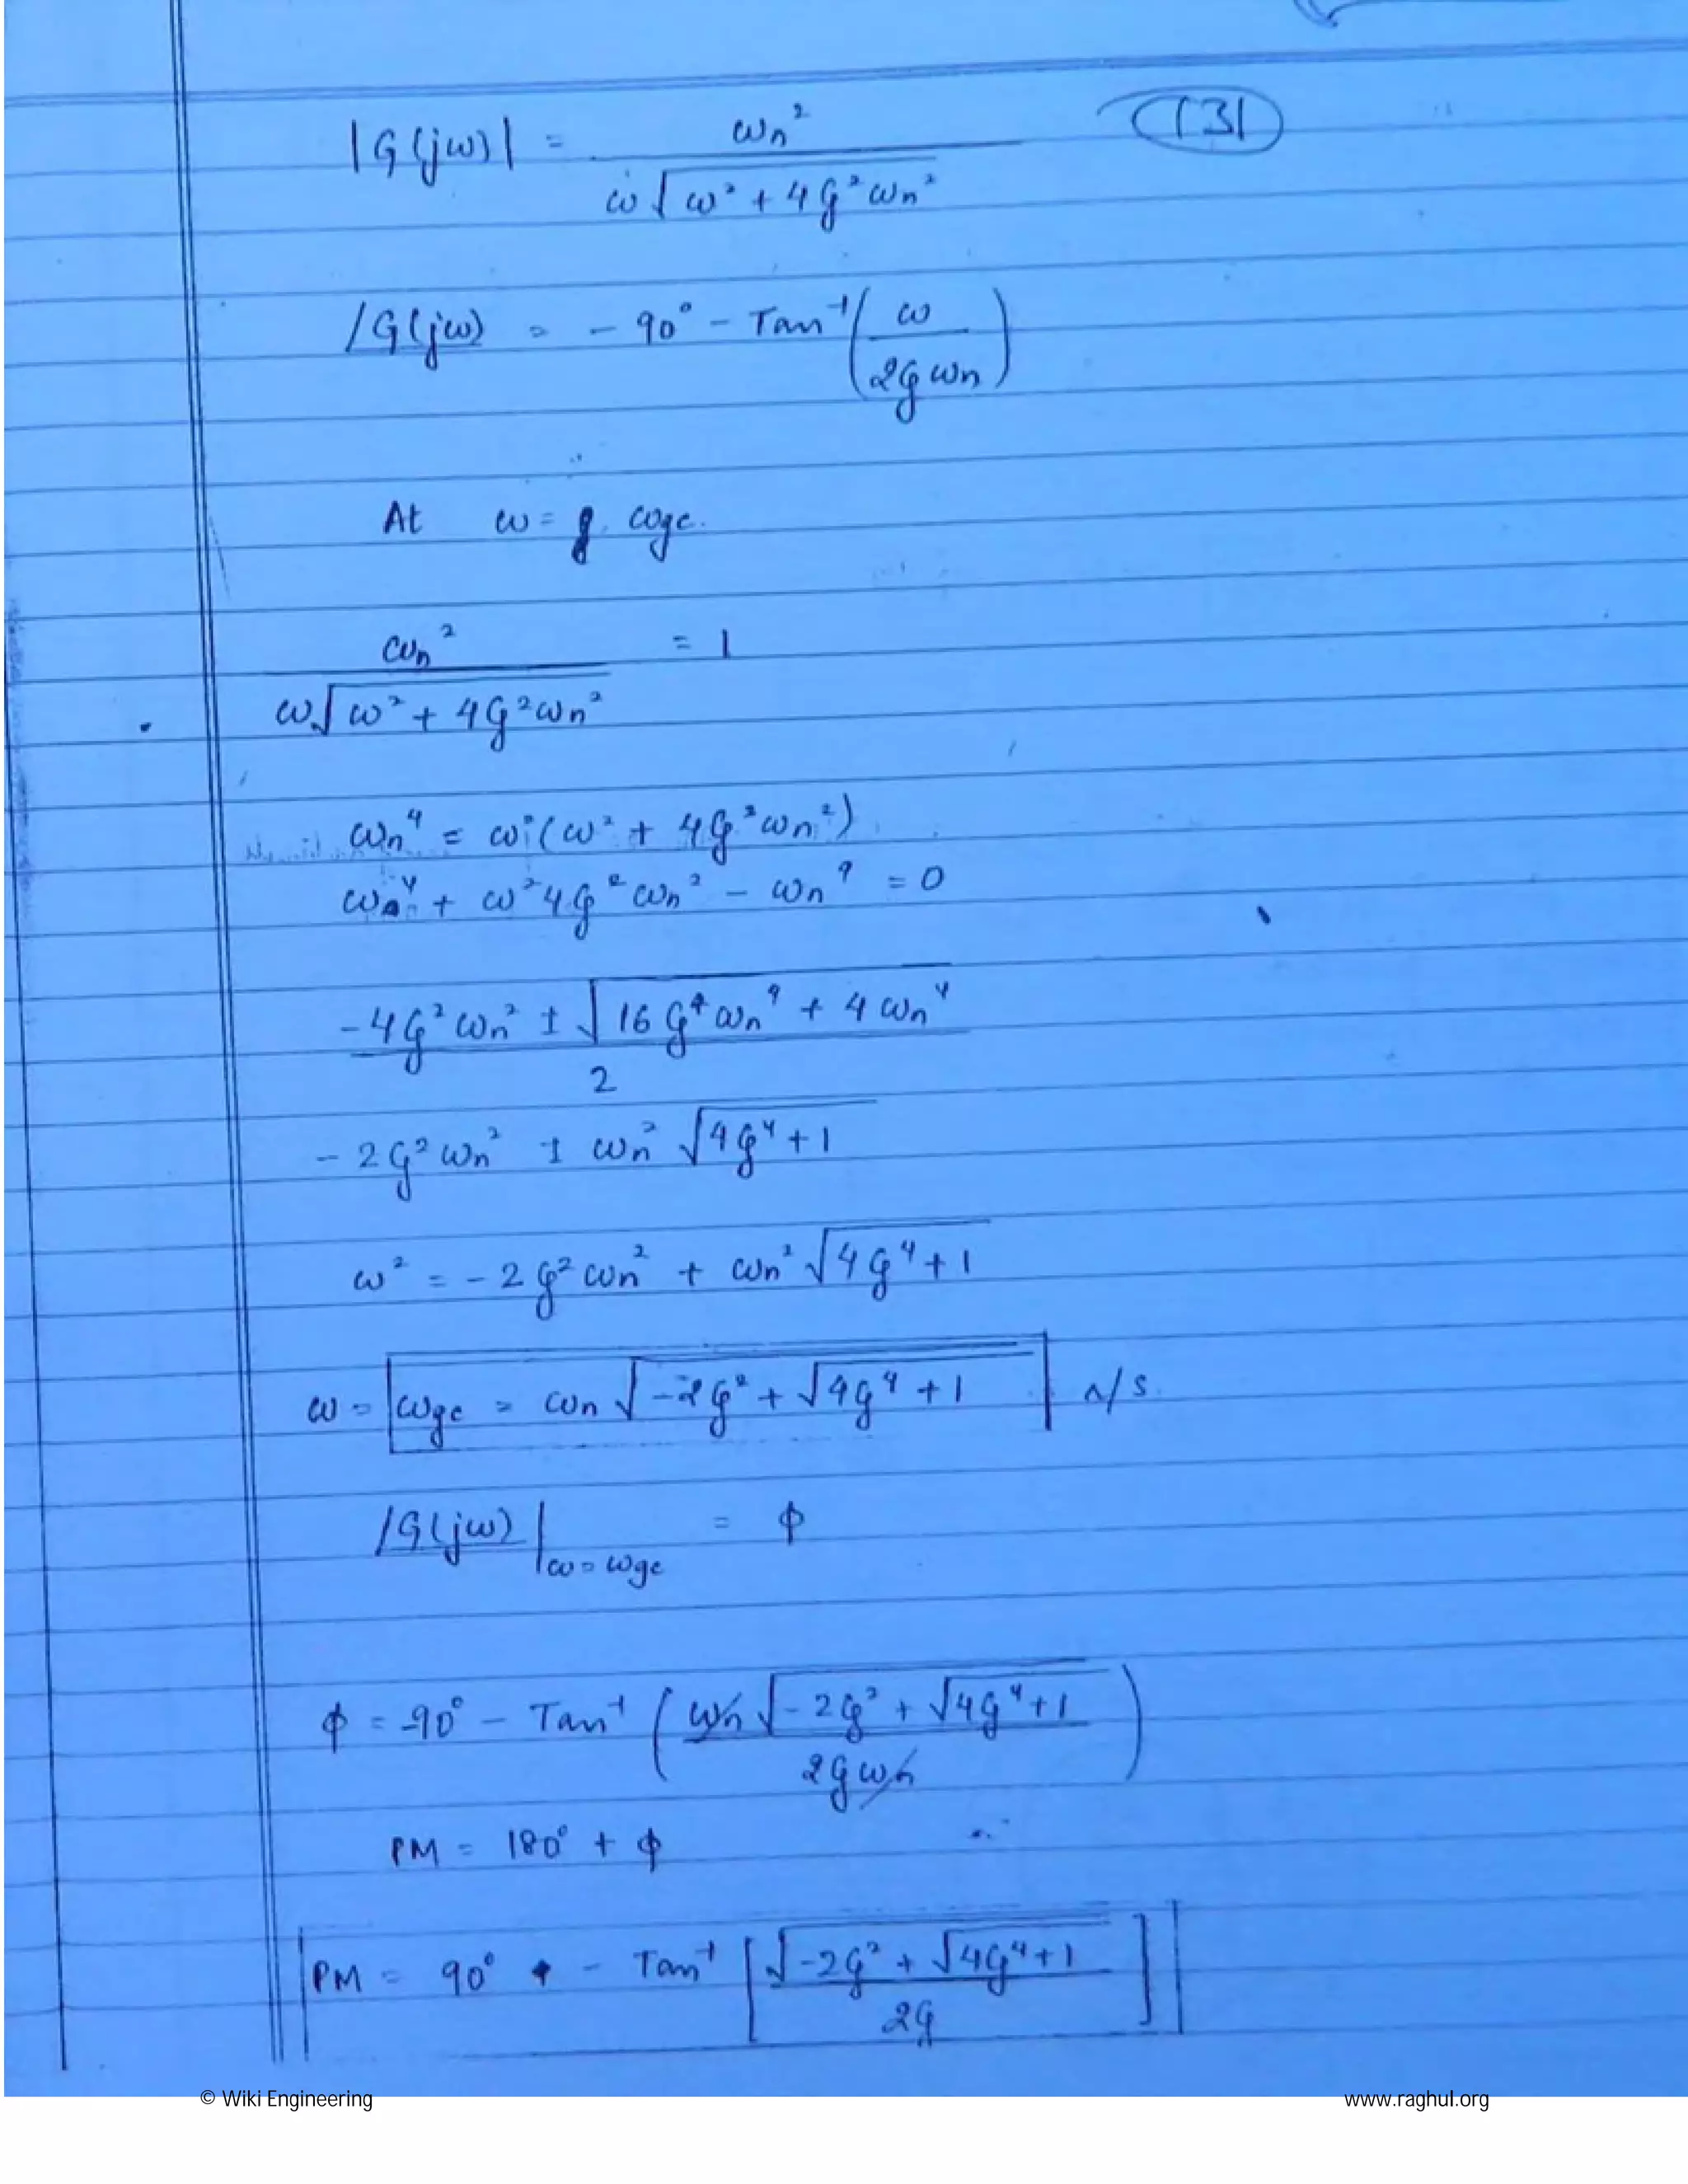 (131)
|G(jω)| = ωn² / ω√(ω² + 4ζ²ωn²)
/G(jω) = - 90° - Tan⁻¹(ω / 2ζωn)
At ω = ωgc.
ωn² / ω√(ω² + 4ζ²ωn²) = 1
ωn⁴ = ω²(ω² + 4ζ²ωn²)
ω⁴ + ω²4ζ²ωn² - ωn⁴ = 0
-4ζ²ωn² ± √(16ζ⁴ωn⁴ + 4ωn⁴) / 2
- 2ζ²ωn² ± ωn² √(4ζ⁴+1)
ω² = - 2ζ²ωn² + ωn² √(4ζ⁴+1)
ω = ωgc = ωn √(-2ζ² + √(4ζ⁴+1)) r/s.
/G(jω) |ω=ωgc = ϕ
ϕ = -90° - Tan⁻¹(ωn √(-2ζ² + √(4ζ⁴+1)) / 2ζωn)
PM = 180° + ϕ
PM = 90° - Tan⁻¹[√(-2ζ² + √(4ζ⁴+1)) / 2ζ]
© Wiki Engineering www.raghul.org